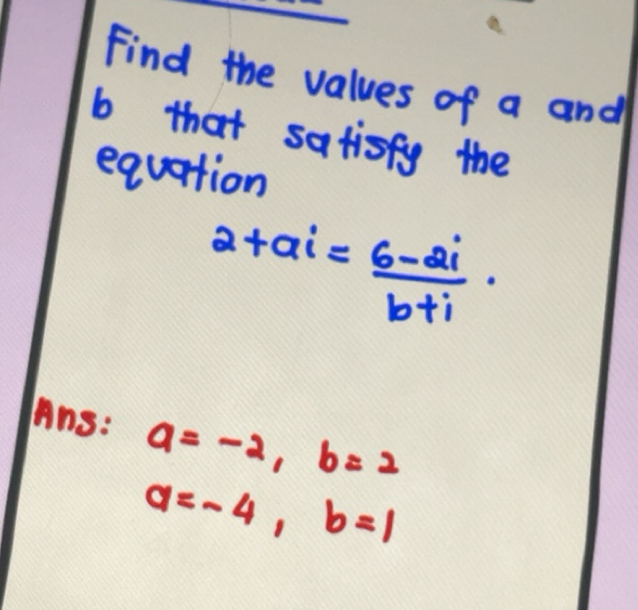 Find the values of a and
b that satisfy the
equation
2+ai = 6-2i / b+i .
Ans: a = -2, b = 2
a = -4, b = 1